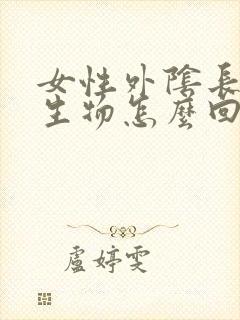 女性外陰長
生物怎麼回
盧婷雯